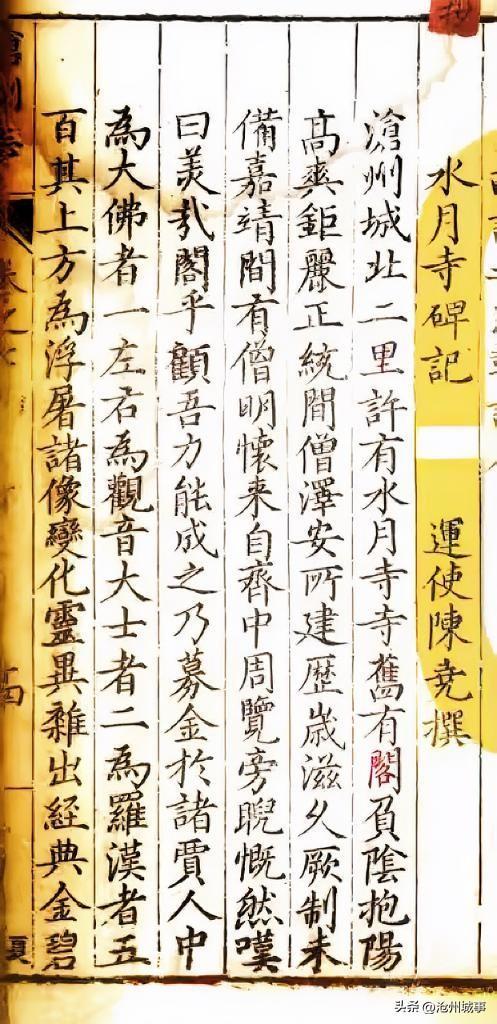 水月寺碑記 運使陳堯撰
滄州城北二里許有水月寺寺舊有閣負陰抱陽
高爽鉅麗正統間僧澤安所建歷歲滋久厥制未
備嘉靖間有僧明懷来自齊中周覽旁睨慨然嘆
曰美㦲閣乎顧吾力能成之乃募金於諸賈人中
為大佛者一左右為觀音大士者二為羅漢者五
百其上方為浮屠諸像變化靈異雜出經典金碧
头条 @沧州城事